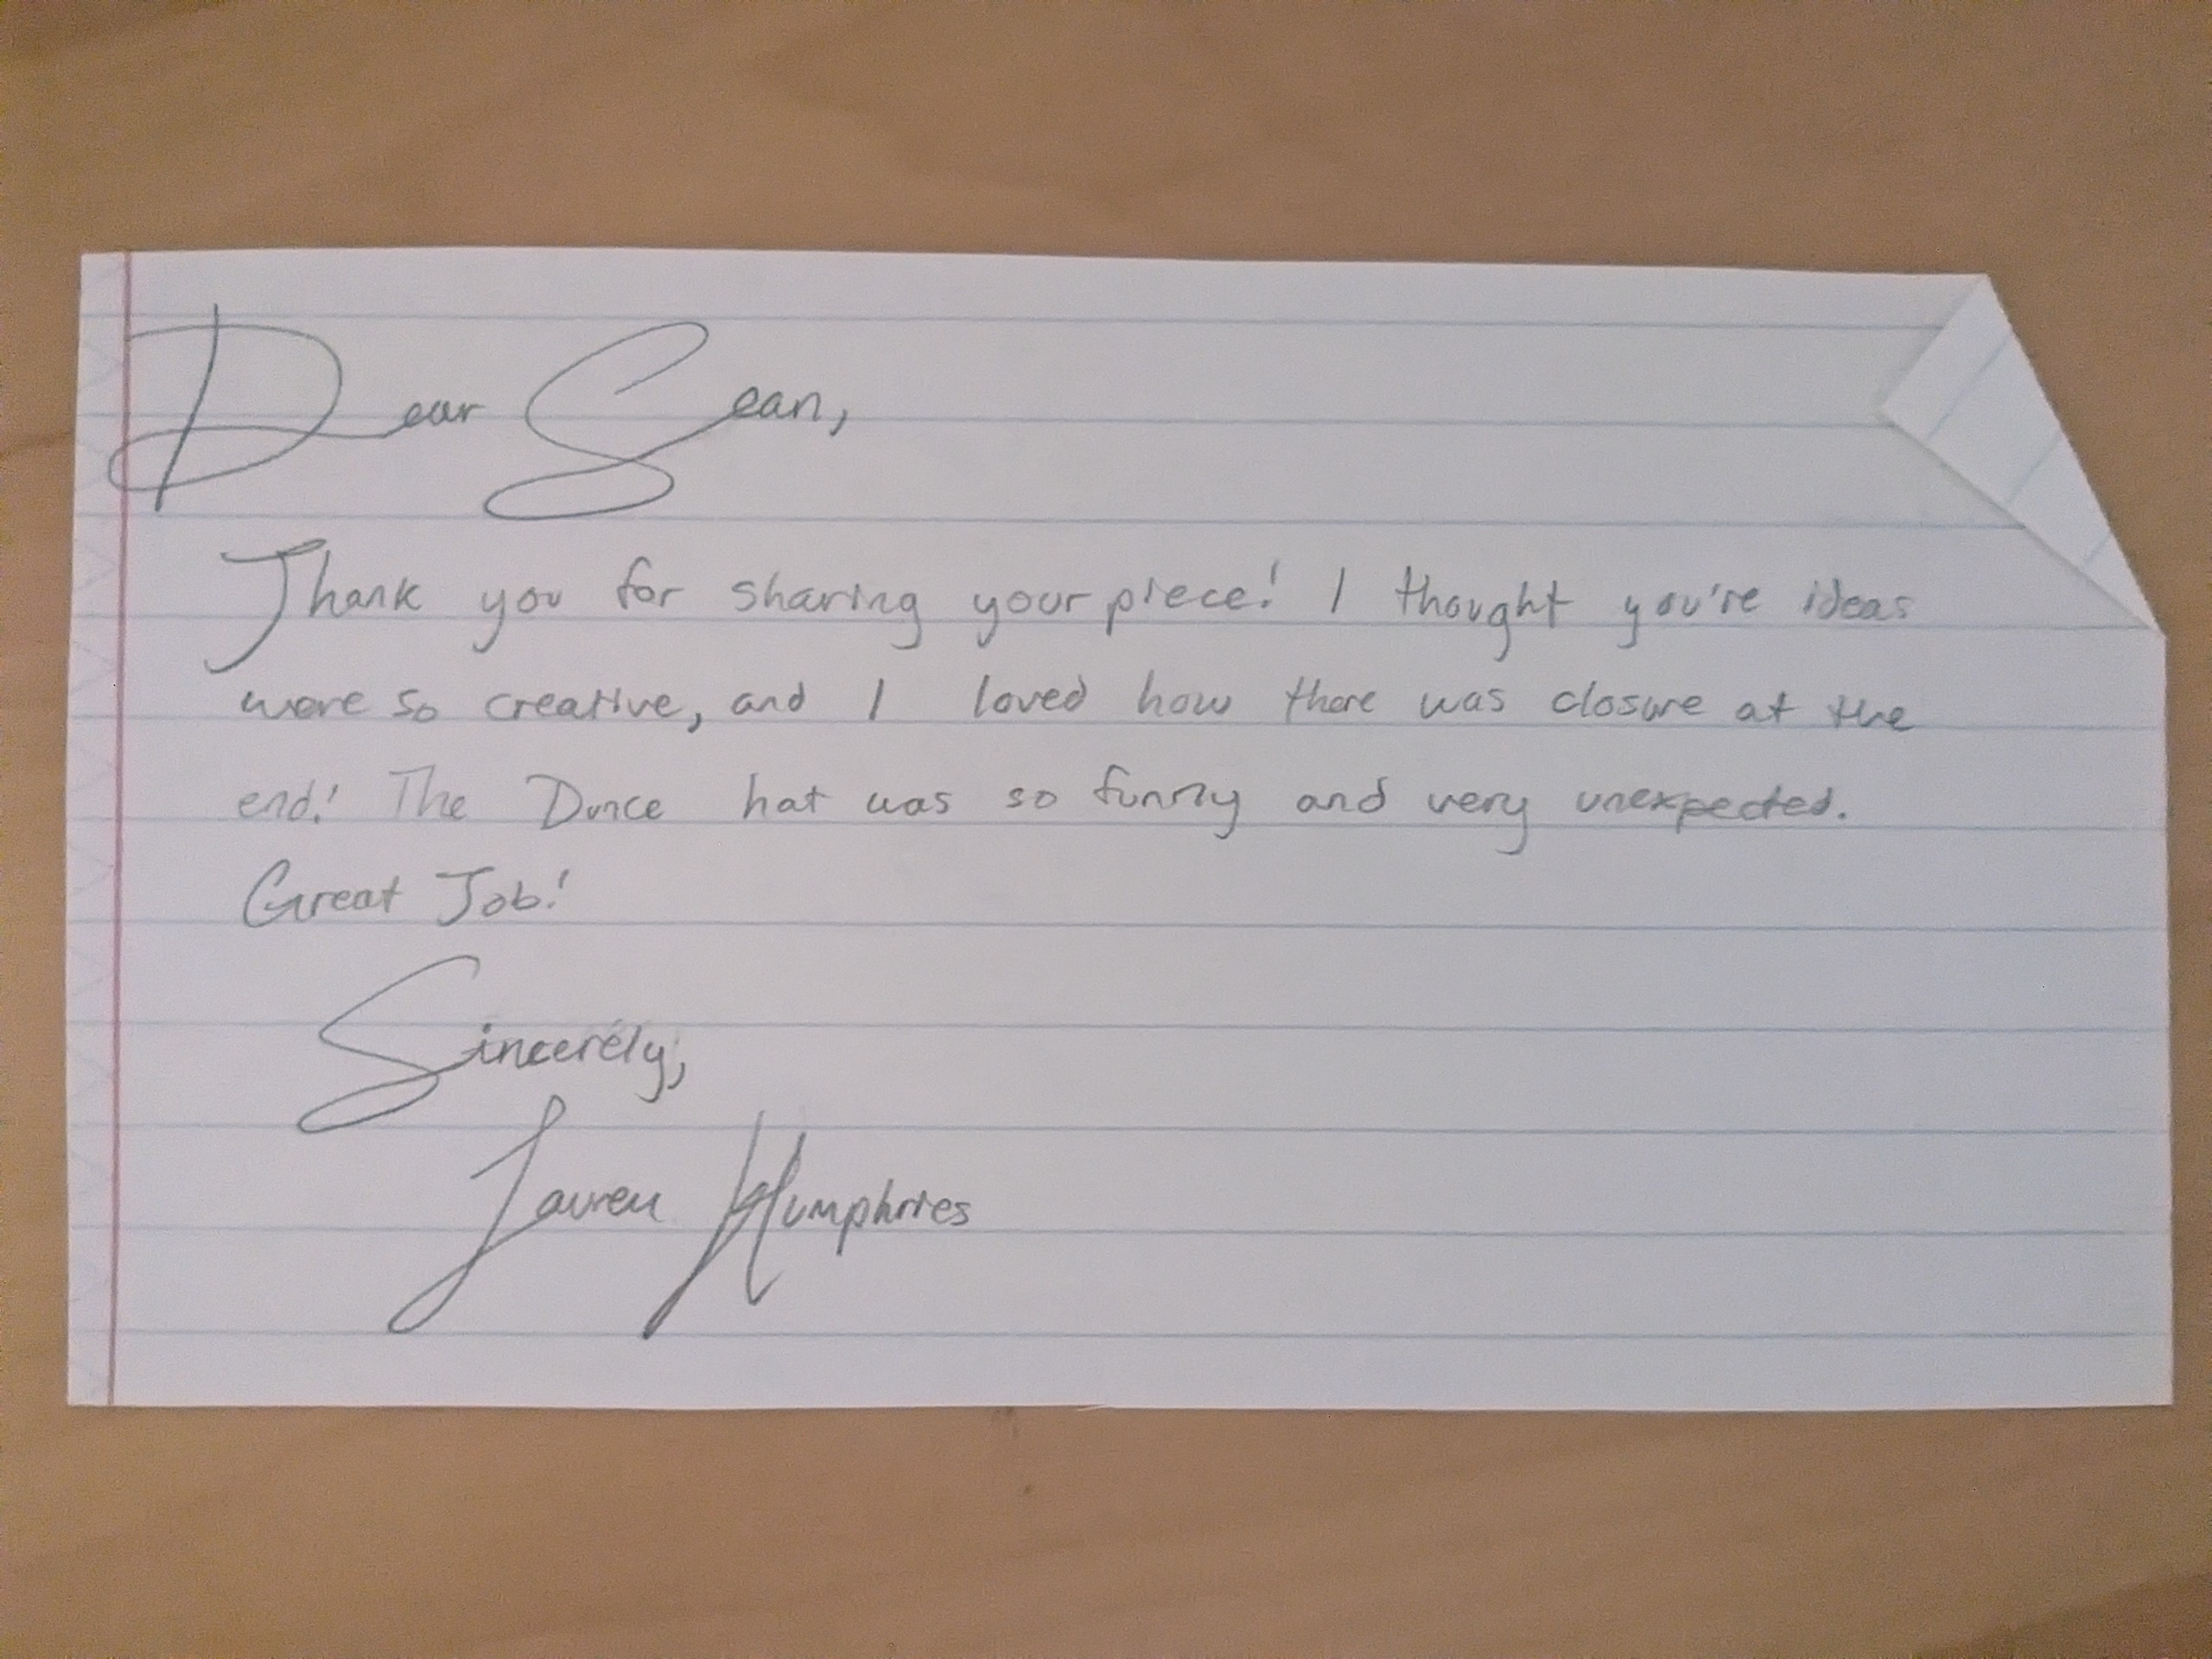 Dear Sean,
Thank you for sharing your piece! I thought you're ideas
were so creative, and I loved how there was closure at the
end! The Dunce hat was so funny and very unexpected.
Great Job!
Sincerely,
Lauren Humphries